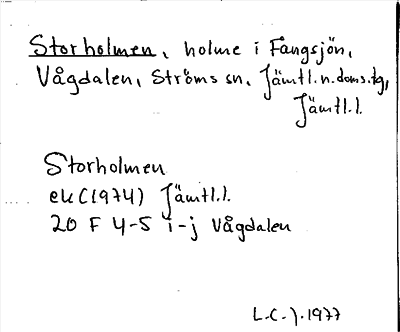 Storholmen, holme i Fångsjön,
Vågdalen, Ströms sn, Jämtl.n.doms.tg,
Jämtl.l.
Storholmen
ek (1974) Jämtl.l.
20 F 4-5 i-j Vågdalen
L.C.J. 1977